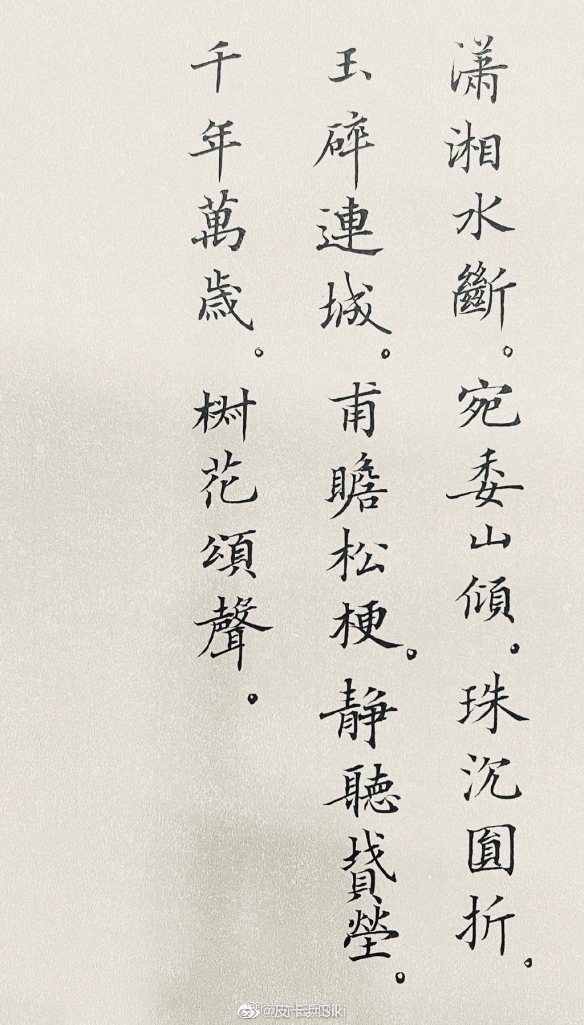 瀟湘水斷。宛委山傾。珠沉圓折。
玉碎連城。甫瞻松梗。静聽塋。
千年萬歳。树花頌聲。
@皮卡兵Siki